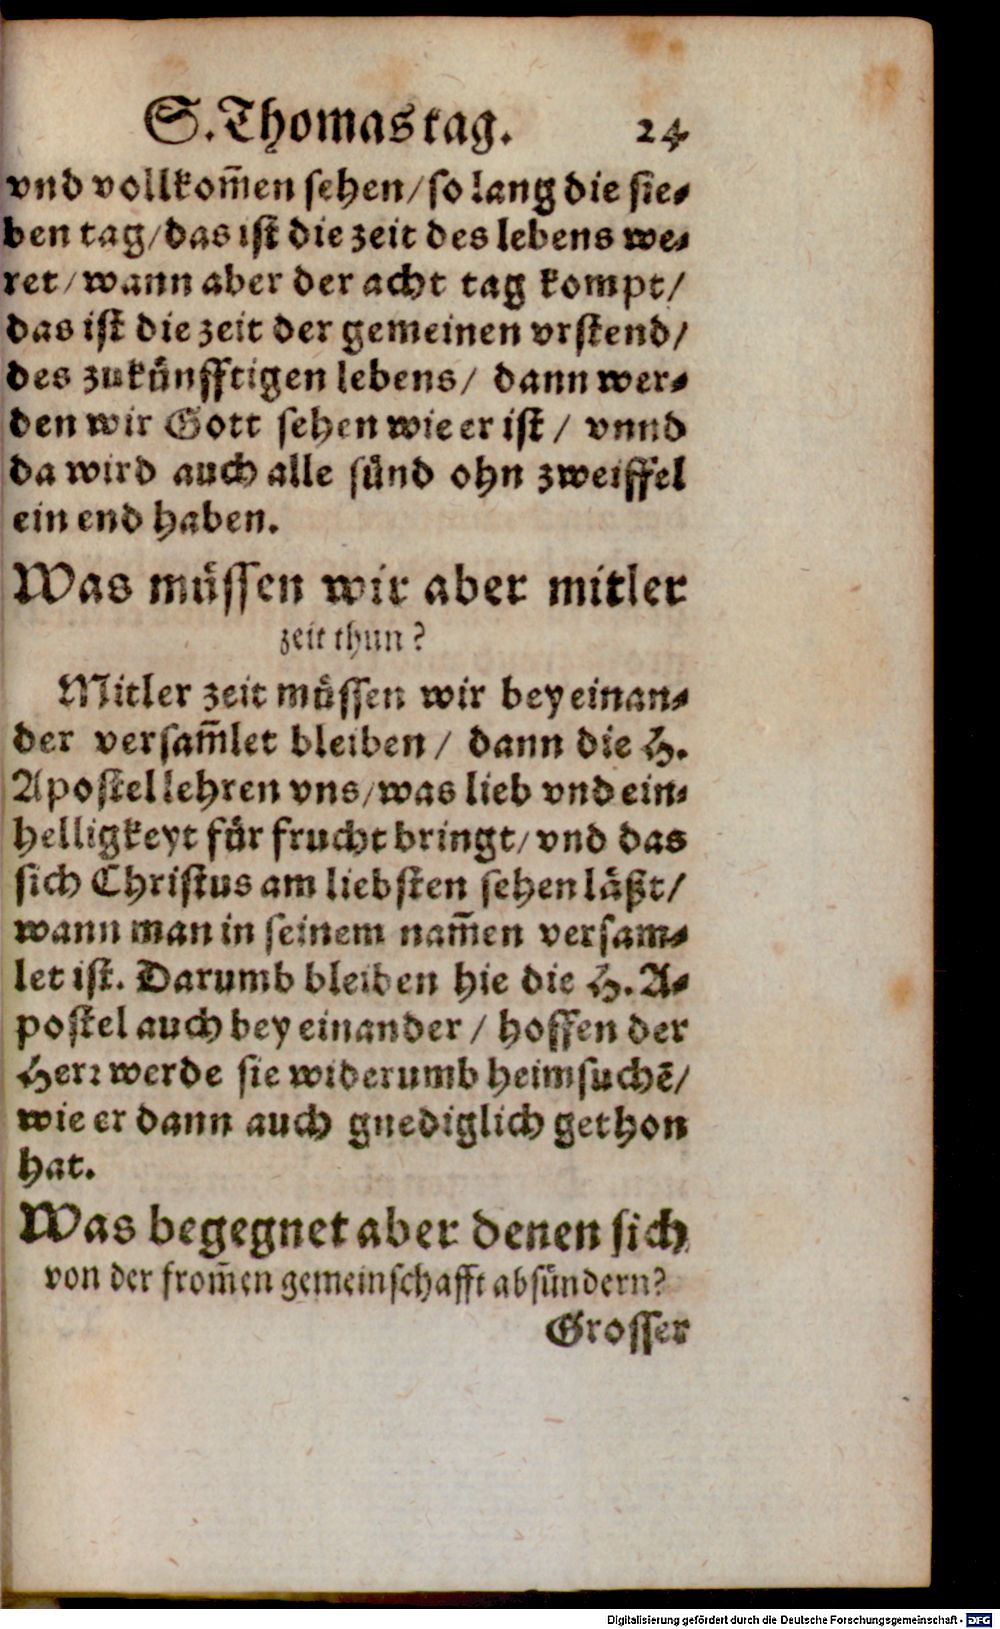 S. Thomas tag. 24
vnd vollkom̃en sehen/ so lang die sie-
ben tag/ das ist die zeit des lebens we-
ret/ wann aber der acht tag kompt/
das ist die zeit der gemeinen vrstend/
des zukünfftigen lebens/ dann wer-
den wir Gott sehen wie er ist/ vnnd
da wird auch alle sünd ohn zweiffel
ein end haben.
Was müssen wir aber mitler
zeit thun?
Mitler zeit müssen wir bey einan-
der versam̃let bleiben/ dann die H.
Apostel lehren vns/ was lieb vnd ein-
helligkeyt für frucht bringt/ vnd das
sich Christus am liebsten sehen läßt/
wann man in seinem nam̃en versam-
let ist. Darumb bleiben hie die H. A-
postel auch bey einander/ hoffen der
Herr werde sie widerumb heimsuchē/
wie er dann auch gnediglich gethon
hat.
Was begegnet aber denen sich
von der from̃en gemeinschafft absündern?
Grosser
Digitalisierung gefördert durch die Deutsche Forschungsgemeinschaft - DFG